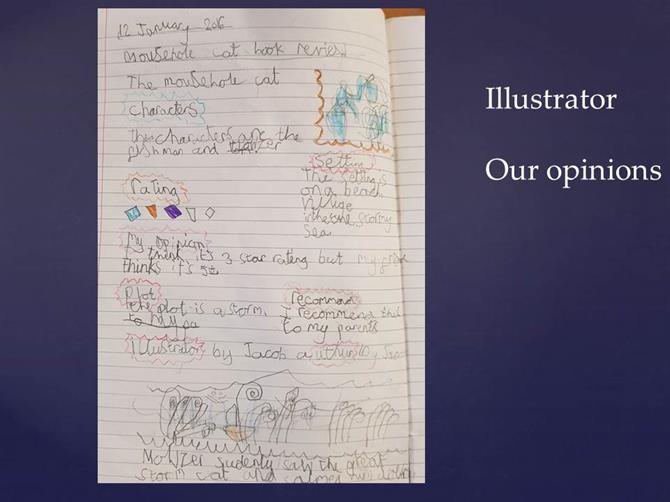 12 January 206
mousehole cat book review
The mousehole cat
characters
The characters are the
fishman and
Setting
The setting is
on a beach
village
in the the stormy
Sea
rating
My opinion
I think it's 3 star rating but my
thinks it's
Plot
the plot is a storm.
recommend
I recommend this
to my parents
Illustrator by Jacob author
Mowzer sudenly saw the great
storm cat and
Illustrator
Our opinions